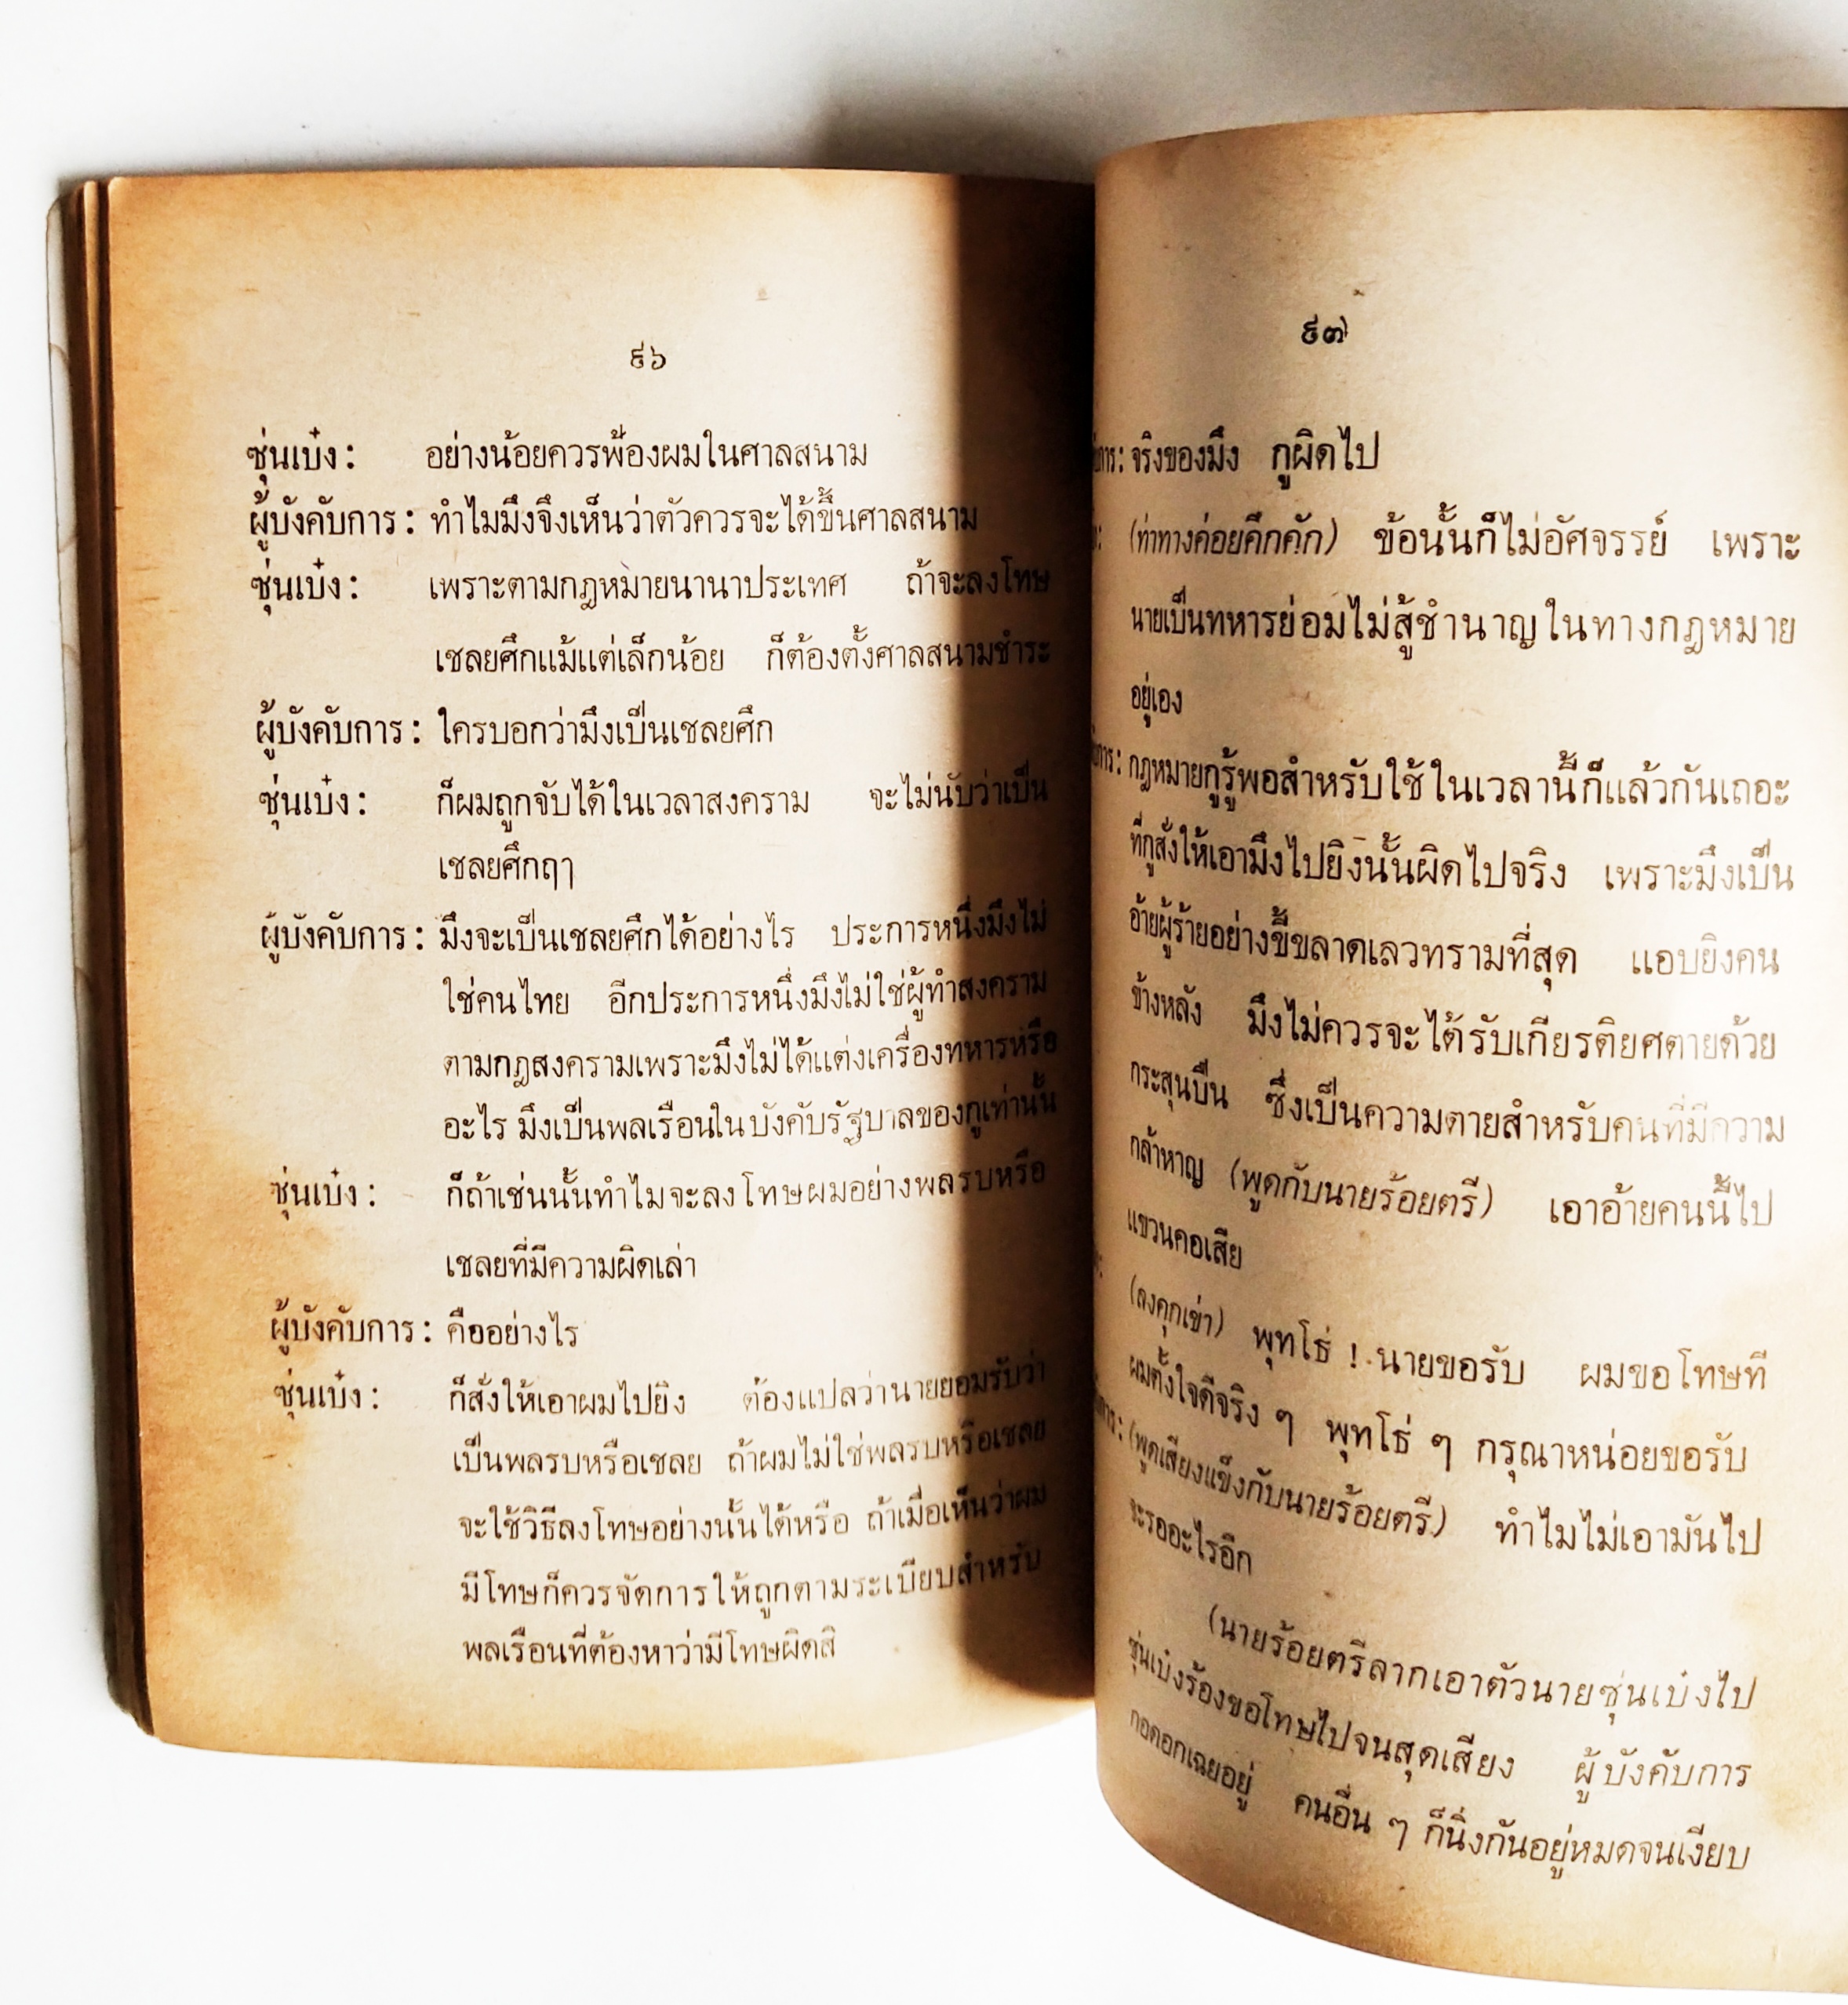 ๙๖
ซุ่นเบ๋ง :	อย่างน้อยควรฟ้องผมในศาลสนาม
ผู้บังคับการ : ทำไมมึงจึงเห็นว่าตัวควรจะได้ขึ้นศาลสนาม
ซุ่นเบ๋ง :	เพราะตามกฎหมายนานาประเทศ ถ้าจะลงโทษ
เชลยศึกแม้แต่เล็กน้อย ก็ต้องตั้งศาลสนามชำระ
ผู้บังคับการ : ใครบอกว่ามึงเป็นเชลยศึก
ซุ่นเบ๋ง :	ก็ผมถูกจับได้ในเวลาสงคราม จะไม่นับว่าเป็น
เชลยศึกฤๅ
ผู้บังคับการ : มึงจะเป็นเชลยศึกได้อย่างไร ประการหนึ่งมึงไม่
ใช่คนไทย อีกประการหนึ่งมึงไม่ใช่ผู้ทำสงคราม
ตามกฎสงครามเพราะมึงไม่ได้แต่งเครื่องทหารหรือ
อะไร มึงเป็นพลเรือนในบังคับรัฐบาลของกูเท่านั้น
ซุ่นเบ๋ง :	ก็ถ้าเช่นนั้นทำไมจะลงโทษผมอย่างพลรบหรือ
เชลยที่มีความผิดเล่า
ผู้บังคับการ : คืออย่างไร
ซุ่นเบ๋ง :	ก็สั่งให้เอาผมไปยิง ต้องแปลว่านายยอมรับว่า
เป็นพลรบหรือเชลย ถ้าผมไม่ใช่พลรบหรือเชลย
จะใช้วิธีลงโทษอย่างนั้นได้หรือ ถ้าเมื่อเห็นว่าผม
มีโทษก็ควรจัดการให้ถูกตามระเบียบสำหรับ
พลเรือนที่ต้องหาว่ามีโทษผิดสิ
๙๗
การ : จริงของมึง กูผิดไป
(ท่าทางค่อยคึกคัก) ข้อนั้นก็ไม่อัศจรรย์ เพราะ
นายเป็นทหารย่อมไม่สู้ชำนาญในทางกฎหมาย
อยู่เอง
การ : กฎหมายกูรู้พอสำหรับใช้ในเวลานี้ก็แล้วกันเถอะ
ที่กูสั่งให้เอามึงไปยิงนั้นผิดไปจริง เพราะมึงเป็น
อ้ายผู้ร้ายอย่างขี้ขลาดเลวทรามที่สุด แอบยิงคน
ข้างหลัง มึงไม่ควรจะได้รับเกียรติยศตายด้วย
กระสุนปืน ซึ่งเป็นความตายสำหรับคนที่มีความ
กล้าหาญ (พูดกับนายร้อยตรี) เอาอ้ายคนนี้ไป
แขวนคอเสีย
(ลงคุกเข่า) พุทโธ่ ! นายขอรับ ผมขอโทษที
ผมตั้งใจดีจริง ๆ พุทโธ่ ๆ กรุณาหน่อยขอรับ
การ : (พูดเสียงแข็งกับนายร้อยตรี) ทำไมไม่เอามันไป
จะรออะไรอีก
(นายร้อยตรีลากเอาตัวนายซุ่นเบ๋งไป
ซุ่นเบ๋งร้องขอโทษไปจนสุดเสียง ผู้บังคับการ
กอดอกเฉยอยู่ คนอื่น ๆ ก็นิ่งกันอยู่หมดจนเงียบ